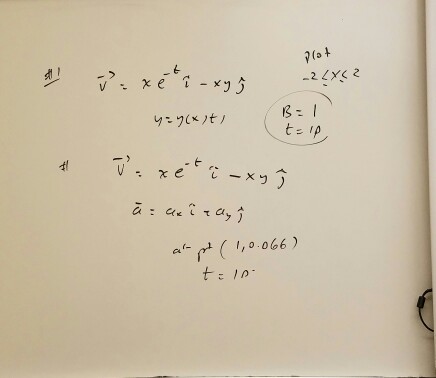 #1 v⃗ = x e^-t î - xy ĵ
plot
-2 ≤ x ≤ 2
y = y(x, t)
B = 1
t = 10
# v⃗ = x e^-t î - xy ĵ
ā = ax î + ay ĵ
at pt (1, 0.066)
t =